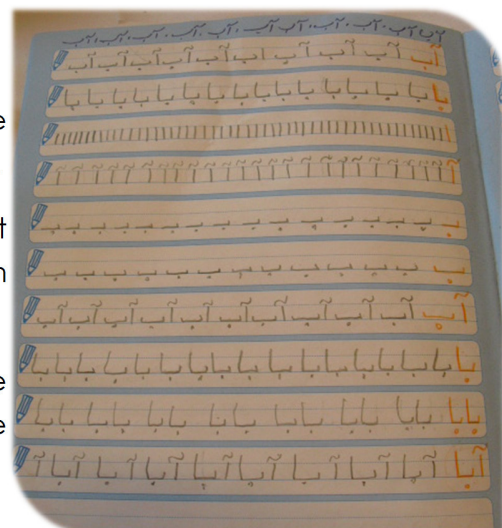 آب آب آب آب آب آب آب آب آب آب آب
آب آب آب آب آب آب آب آب آب آب
با با با با با با با با با با با با با با با با
ا ا ا ا ا ا ا ا ا ا ا ا ا ا ا ا ا ا ا ا ا ا ا ا ا ا ا ا ا ا ا ا ا ا ا ا ا ا ا ا ا ا ا ا ا ا ا ا
آ آ آ آ آ آ آ آ آ آ آ آ آ آ آ آ آ آ آ آ آ آ آ
بـ بـ بـ بـ بـ بـ بـ بـ بـ بـ بـ بـ بـ بـ بـ
ب ب ب ب ب ب ب ب ب ب ب ب ب
آب آب آب آب آب آب آب آب آب آب آب
با با با با با با با با با با با با با با با با با
بابا بابا بابا بابا بابا بابا بابا بابا
آبا آبا آبا آبا آبا آبا آبا آبا آبا آ